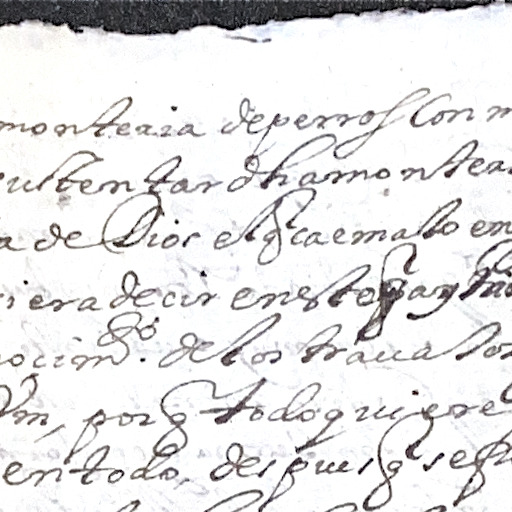 monteria de perros Con m
sustentar dha montea
a de Dios el q cae malo en
iera decir en esto q ay
nocim.to de los trauajos
Vm, porq todo quiere
en todo. despues q se